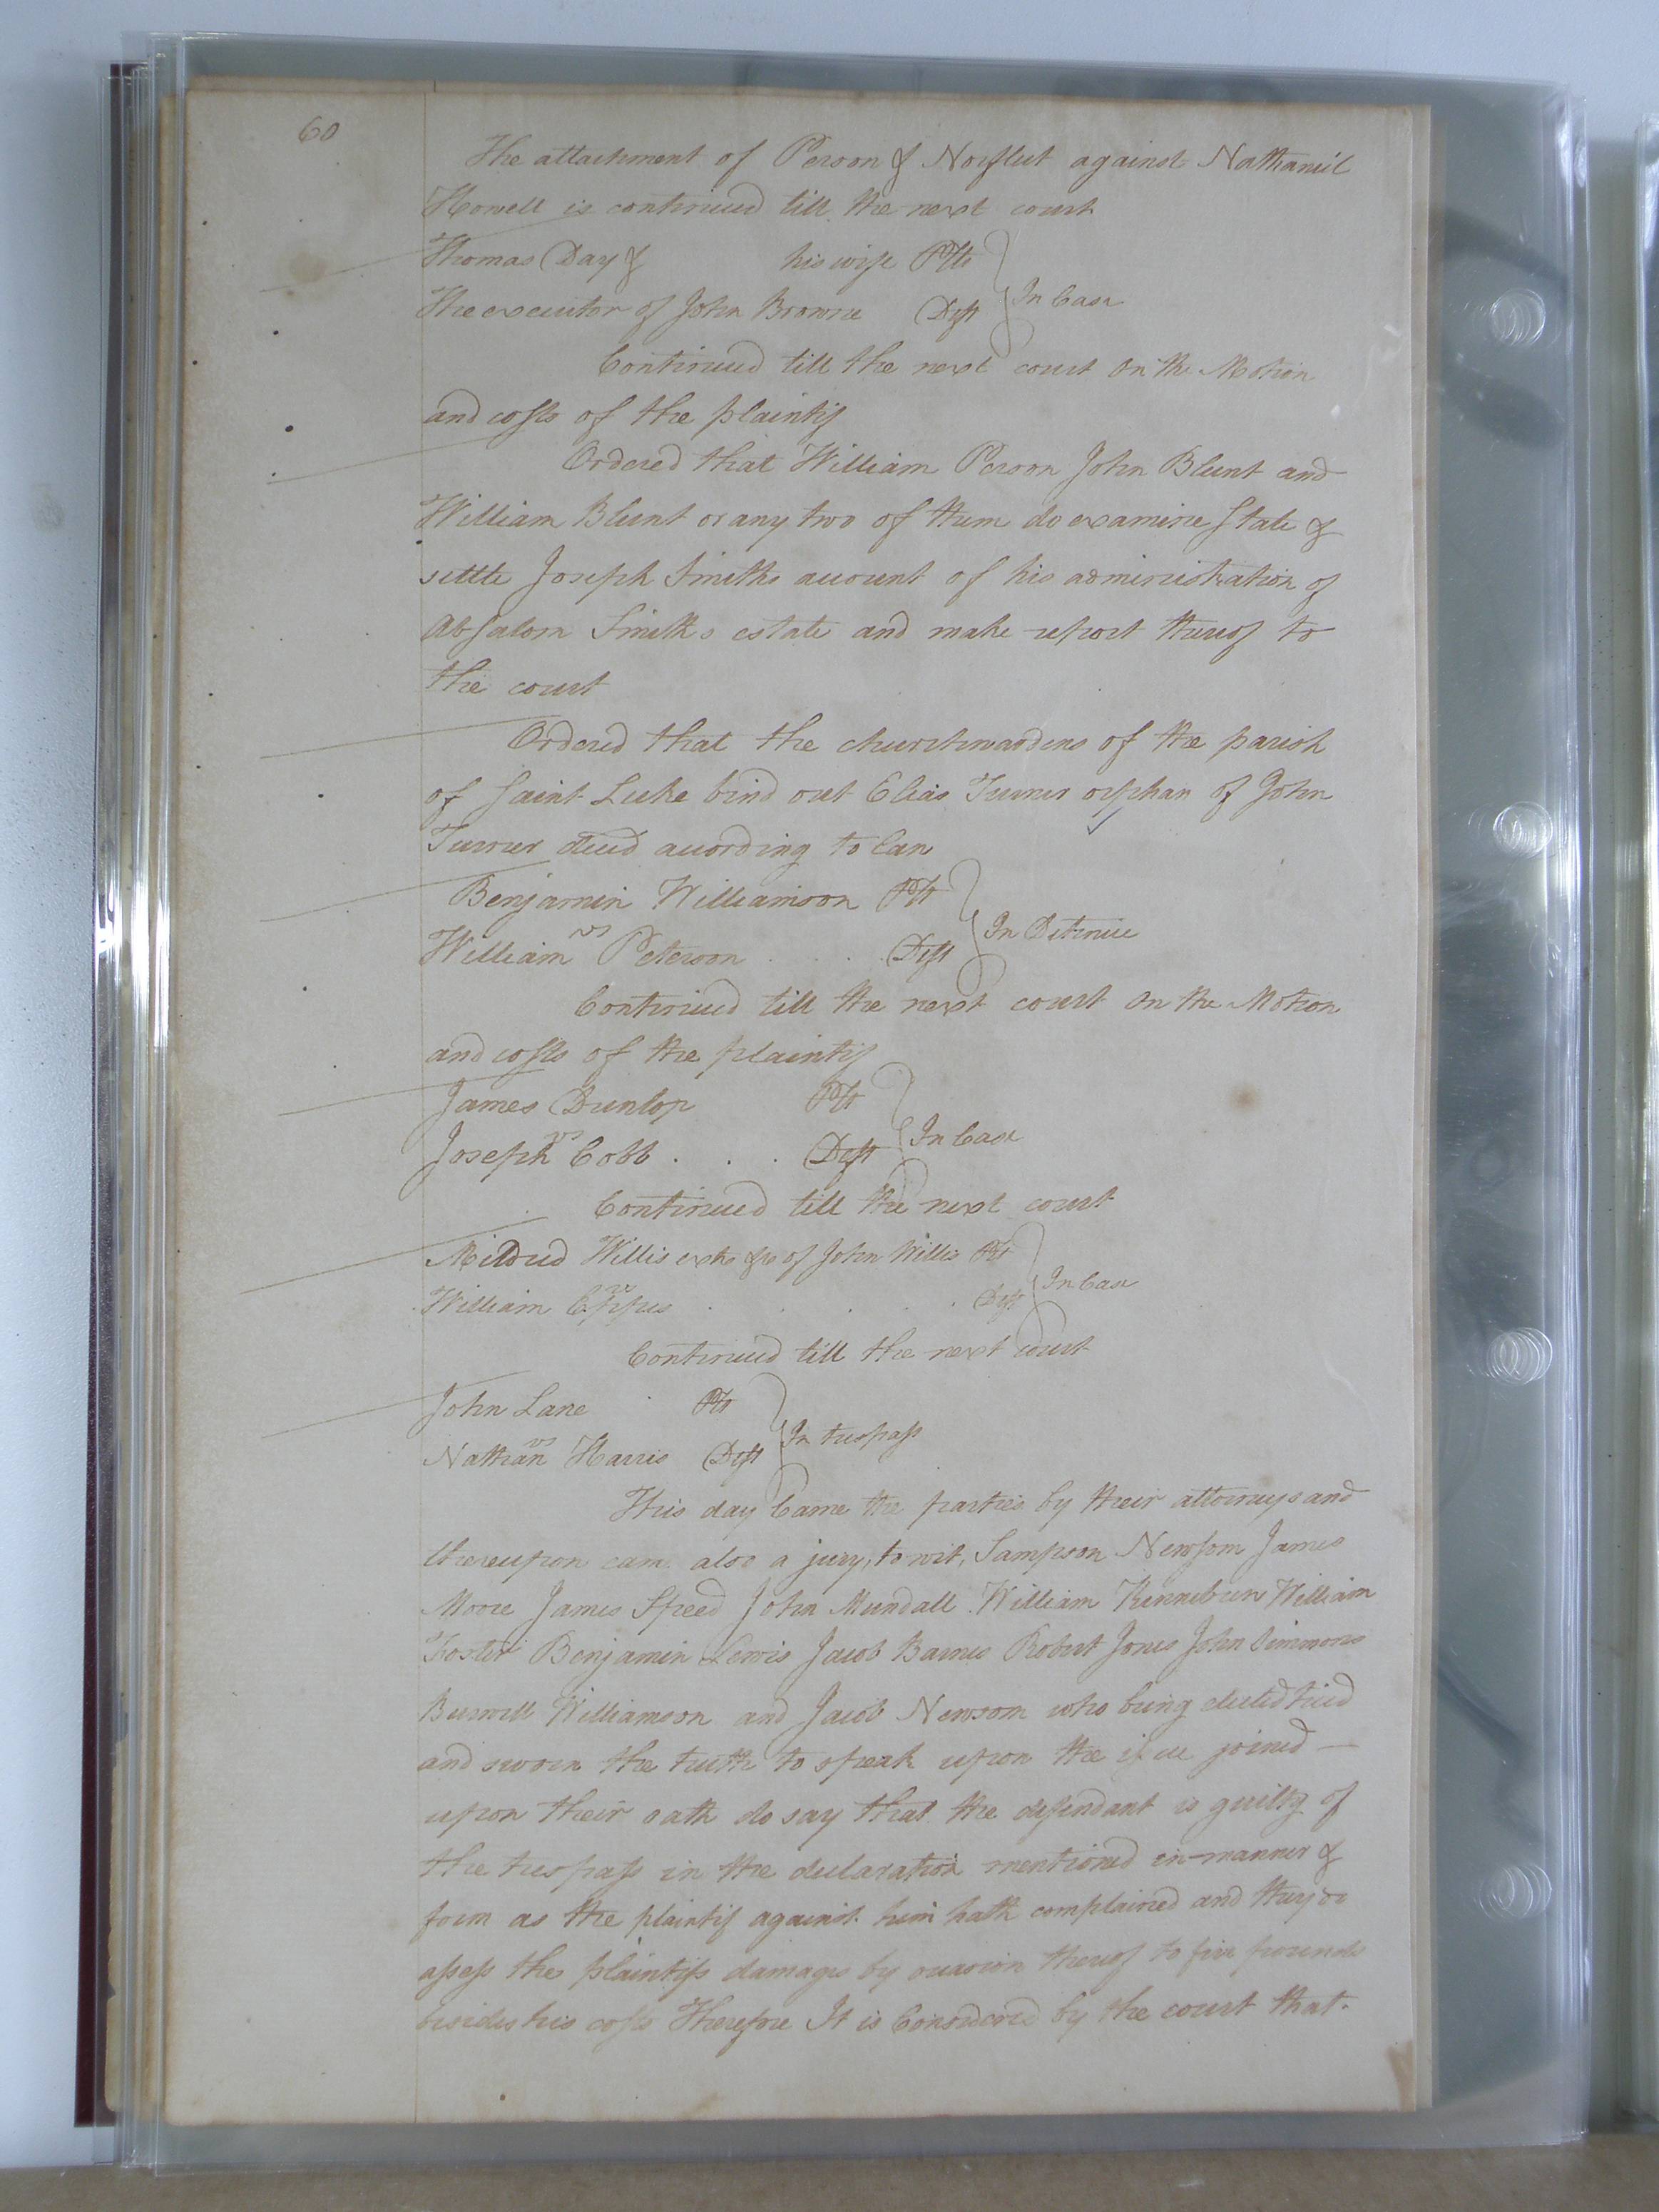 60
The attachment of Person & Norfleet against Nathaniel
Howell is continued till the next court
Thomas Day & his wife Plts
The executor of John Browne Deft } In Case
Continued till the next court on the Motion
and costs of the plaintif
Ordered that William Person John Blunt and
William Blunt or any two of them do examine State &
settle Joseph Smiths account of his administration of
Absalom Smiths estate and make report thereof to
the court
Ordered that the churchwardens of the parish
of Saint Luke bind out Elias Turner orphan of John
Turner decd according to Law
Benjamin Williamson Plt
vs
William Peterson . . . Deft } In Detinue
Continued till the next court on the Motion
and costs of the plaintif
James Dunlop Plt
vs
Joseph Cobb . . . Deft } In Case
Continued till the next court
Mildred Willis extx &c of John Willis Plt
vs
William Eppes . . . . . Deft } In Case
Continued till the next court
John Lane Plt
vs
Nathan Harris Deft } In trespass
This day Came the parties by their attorneys and
thereupon came also a jury, to wit, Sampson Newsom James
Moore James Speed John Mundall William Kinnebrew William
Foster Benjamin Lewis Jacob Barnes Robert Jones John Simmons
Burwell Williamson and Jacob Newsom who being elected tried
and sworn the truth to speak upon the issue joined —
upon their oath do say that the defendant is guilty of
the trespass in the declaration mentioned in manner &
form as the plaintif against him hath complained and they do
assess the plaintifs damages by occasion thereof to five pounds
besides his costs Therefore It is Considered by the court that